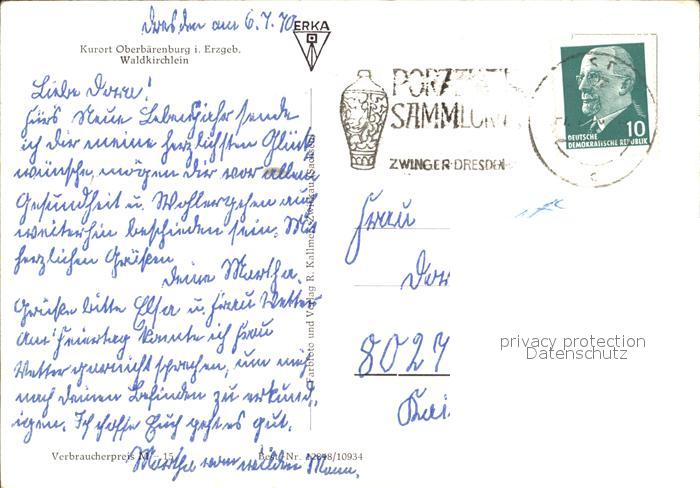 Dresden am 6.7.70
ERKA
Kurort Oberbärenburg i. Erzgeb.
Waldkirchlein
Liebe Dora!
Fürs Neue Lebensjahr sende
ich Dir meine herzlichsten Glück
wünsche, mögen Dir vor allem
Gesundheit u. Wohlergehen auch
weiterhin beschieden sein. Mit
herzlichen Grüßen
Deine Martha.
Grüße bitte Elsa u. Frau Vetter
Am Feiertag konnte ich Frau
Vetter garnicht sprechen, um mich
nach Deinem Befinden zu erkund-
igen. Ich hoffe Euch geht es gut.
Martha vom wilden Mann.
Verbraucherpreis M -,15
Best.-Nr. 12898/10934
Farbfoto und Verlag R. Kallmer, Zwickau
PORZELLAN
SAMMLUNG
ZWINGER·DRESDEN
DEUTSCHE
DEMOKRATISCHE REPUBLIK
10
Frau
Dor
8027
privacy protection
Datenschutz